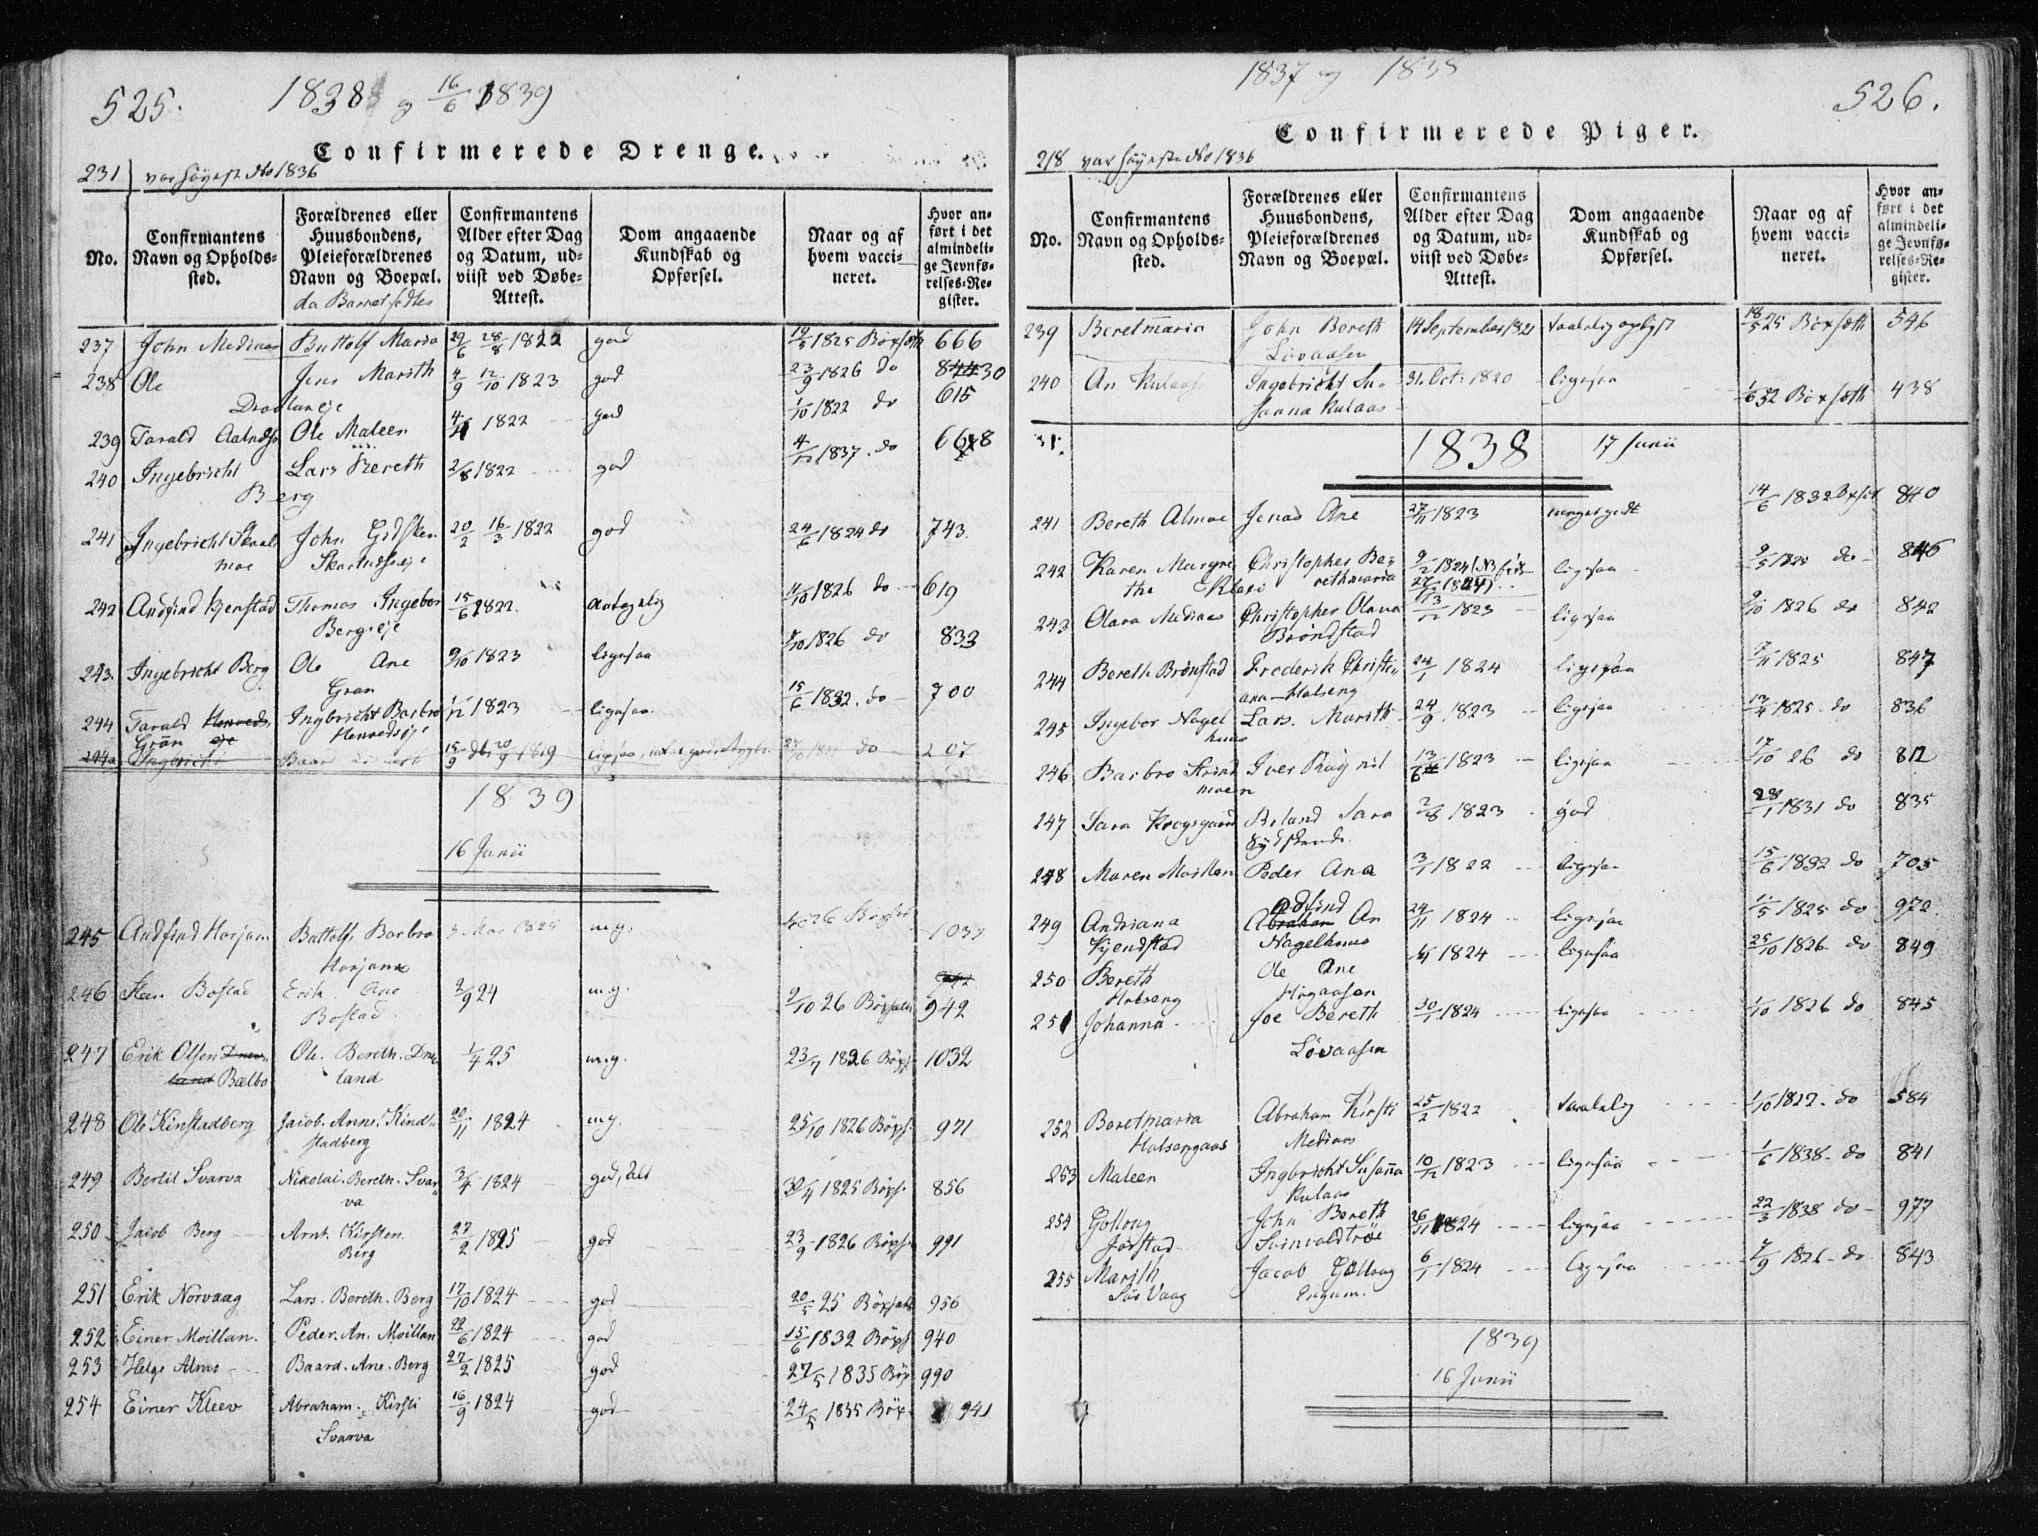 525.
1838 og 16/6 1839
Confirmerede Drenge.
231 var høyeste No 1836
No.
Confirmantens Navn og Opholds-sted.
Forældrenes eller Huusbondens, Pleieforældrenes Navn og Boepæl.
da Barnet fødtes
Confirmantens Alder efter Dag og Datum, ud-viist ved Døbe-Attest.
Dom angaaende Kundskab og Opførsel.
Naar og af hvem vacci-neret.
Hvor an-ført i det almindeli-ge Jevnfø-relses-Re-gister.
237 John Mediaas Buttolf Maria 29/6 28/8 1822 god 19/5 1825 Bøxseth 666
238 Ole Jens Marith 4/9 12/10 1823 god 23/9 1826 do 830
239 Tarald Ole Maleen 1822 god 1/10 1822 do 615
240 Ingebricht Lars Bereth 2/8 1822 god 1837 do
Berg
241 Ingebricht John Gidsken 20/2 16/3 1822 god 24/6 1824 do 743.
moe
242 Andfind Kjenstad Thomas Ingebor 15/6 1822. 11/10 1826 do 619
Bergseje
243. Ingebricht Berg Ole Ane 9/10 1823 ligesaa 1826 do 833
Gran
244 Tarald Ingbricht Barbro 1823 ligesaa. 15/6 1832. do 700
Gran eje Henvedseje
Ingbricht Baard 1819 ligesaa do 207
1839
16 Junii
245 Andfind Buttolf Barbro 1825 m.g. 1037
246 Bostad Erik Ane 2/9 24 m.g. 9/10 26 Bøxseth 942
Bostad.
247 Erik Olsen Ole. Bereth. 1/4 25 m.g. 23/7 1826 Bøxs. 1032
Bælbo land
248 Ole Kinstadberg Jacob. Anne. Kind- 20/11 1824 m.g. 25/10 1826 Bøxs. 971
stadberg
249 Bertil Svarva Nikolai. Bereth. Svar- 3/4 1824 30/4 1825 Bøxs. 856
va
250 Jacob Berg Arnt. Kirsten. 27/2 1825 god 23/9 1826 Bøxs. 991
Berg
251 Erik Norvaag Lars. Bereth. Berg 17/10 1824 god 20/5 25 Bøxseth 956
252 Einer Moillan. Peder. An. Moillan 22/6 1824 god 15/6 1832 Bøxs. 940
253 Helge Baard. Ane. Berg 27/2 1825 god 27/5 1835 Bøx 990
254 Einer Kleev Abraham. Kirsti 16/9 1824 god 24/5 1835 Bøx. 941
Svarva
1837 og 1838
526.
Confirmerede Piger.
218 var høyeste No 1836
No.
Confirmantens Navn og Opholds-sted.
Forældrenes eller Huusbondens, Pleieforældrenes Navn og Boepæl.
Confirmantens Alder efter Dag og Datum, ud-viist ved Døbe-Attest.
Dom angaaende Kundskab og Opførsel.
Naar og af hvem vacci-neret.
Hvor an-ført i det almindeli-ge Jevnfø-relses-Re-gister.
239 Beretmaria John Bereth 14 September 1821 taalelig oplyst 18/5 25 Bøxseth 546
Lovaasen
240 An Kulaas Ingebricht Su- 31. Oct. 1820 ligesaa 1/6 32 Bøxseth 438
sanna Kulaas
1838 17 Junii
241 Bereth Almoe Jonas Ane 27/11 1823 meget godt 14/6 1832 Bøxset 840
242 Karen Margre Christopher Be- 9/2 1824 ligesaa 9/5 1825 do 846
the Kleve rethmaria
243 Olava Mediaas Christopher Olava 1823 ligesaa 9/10 1826 do 842
Brøndstad
244 Bereth Brønstad Frederik Christi- 24/1 1824 ligesaa 1825 847
ana Halseng
245 Ingebor Nagel Lars. Marith 24/9 1823 ligesaa 1825. do 836
huus
246 Barbro Strind Iver Ragnil 13/6 1823 ligesaa 17/10 26 do 812
moen
247 Sara Krogsgaard Erland Sara 2/8 1823 god 28/1 1831 do 835
248 Maren Moillan Peder Ana 3/1 1822 ligesaa 15/6 1832 do 705
249 Andriana Andfind An 24/11 1824 ligesaa 11/5 1825 do 972.
Kjendstad Nagelhuus
250 Bereth Ole Ane 1824 ligesaa 25/10 1826. do 849
Halseng Hogaasen
251 Johanna Joe Bereth 30/1 1824 ligesaa 1/10 1826 do 845
Lovaasen
252 Beretmaria Abraham Kirsti 25/2 1822 taalelig 1/10 1822. do 584
Halsengaas Mediaas
253 Maleen Ingbricht Susanna 10/12 1823 ligesaa 1/6 1838. do 841
Kulaas
254 Gollaug John Bereth 26/11 1824 ligesaa 22/3 1838 do 977
Jørstad Svinvoldtrøe
255 Marith Jacob Gollaug 6/1 1824 ligesaa 7/9 1826. do 843
1839
16 Junii